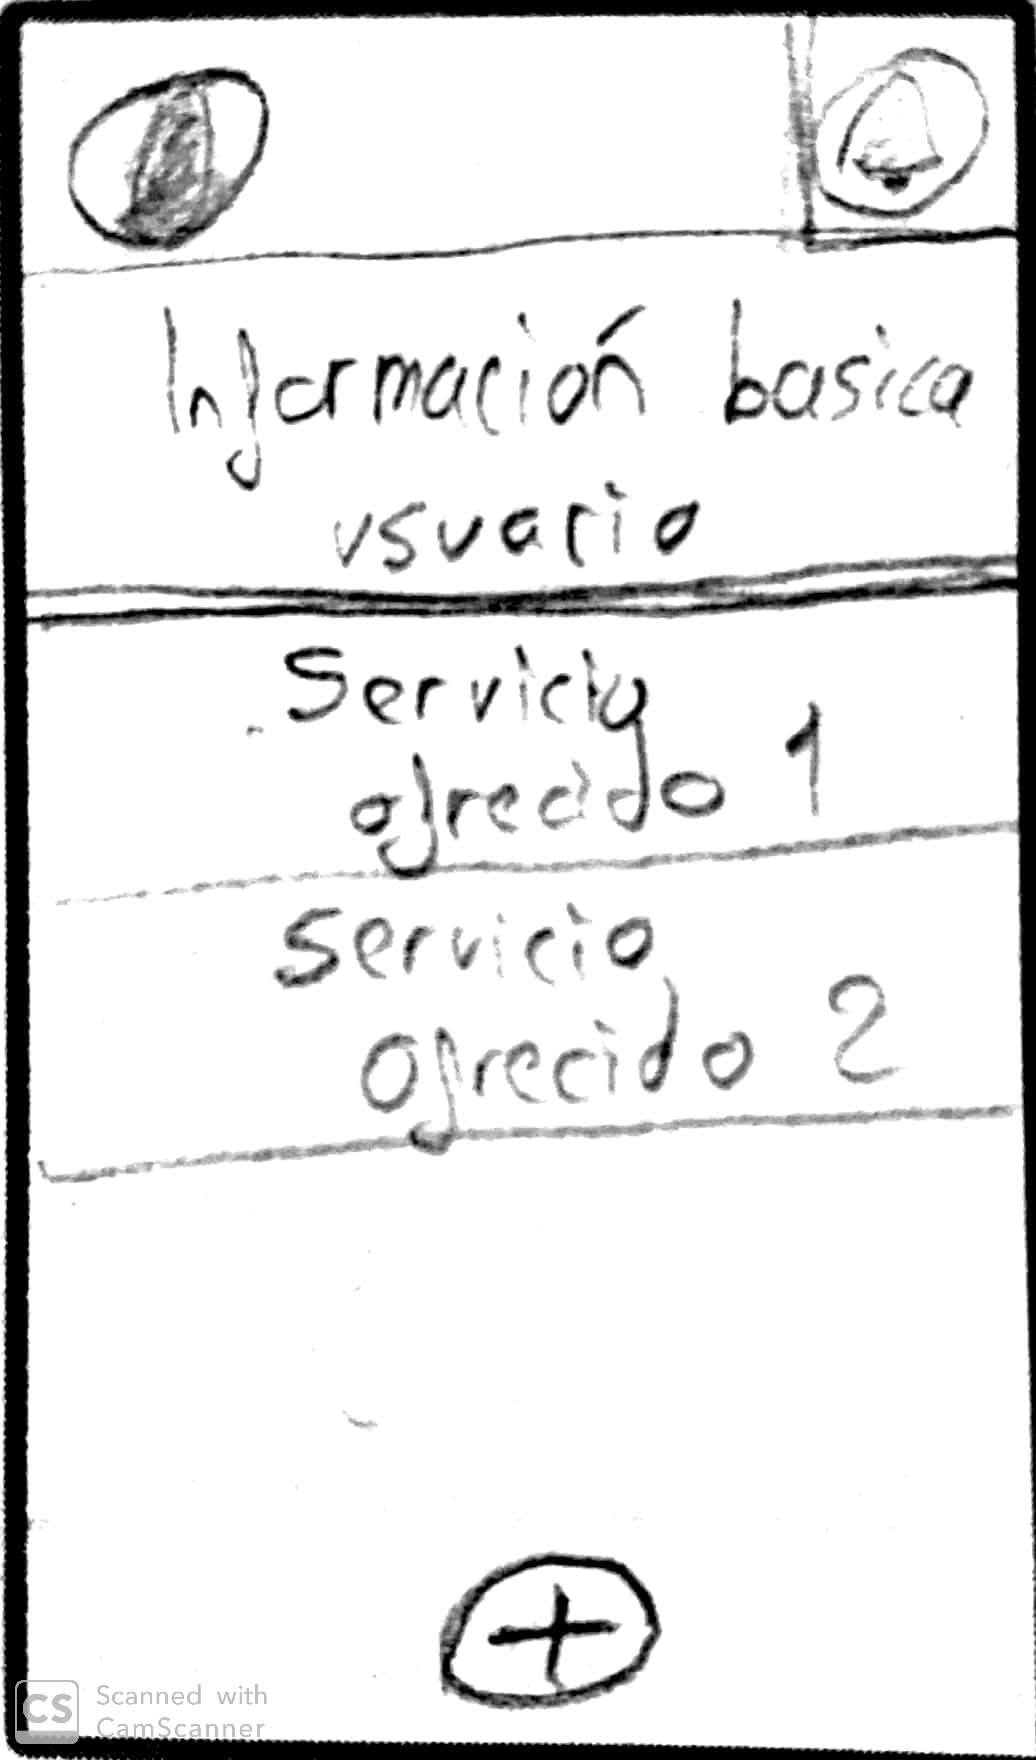 Información basica
usuario
Servicio
ofrecido 1
Servicio
ofrecido 2
CS Scanned with
CamScanner